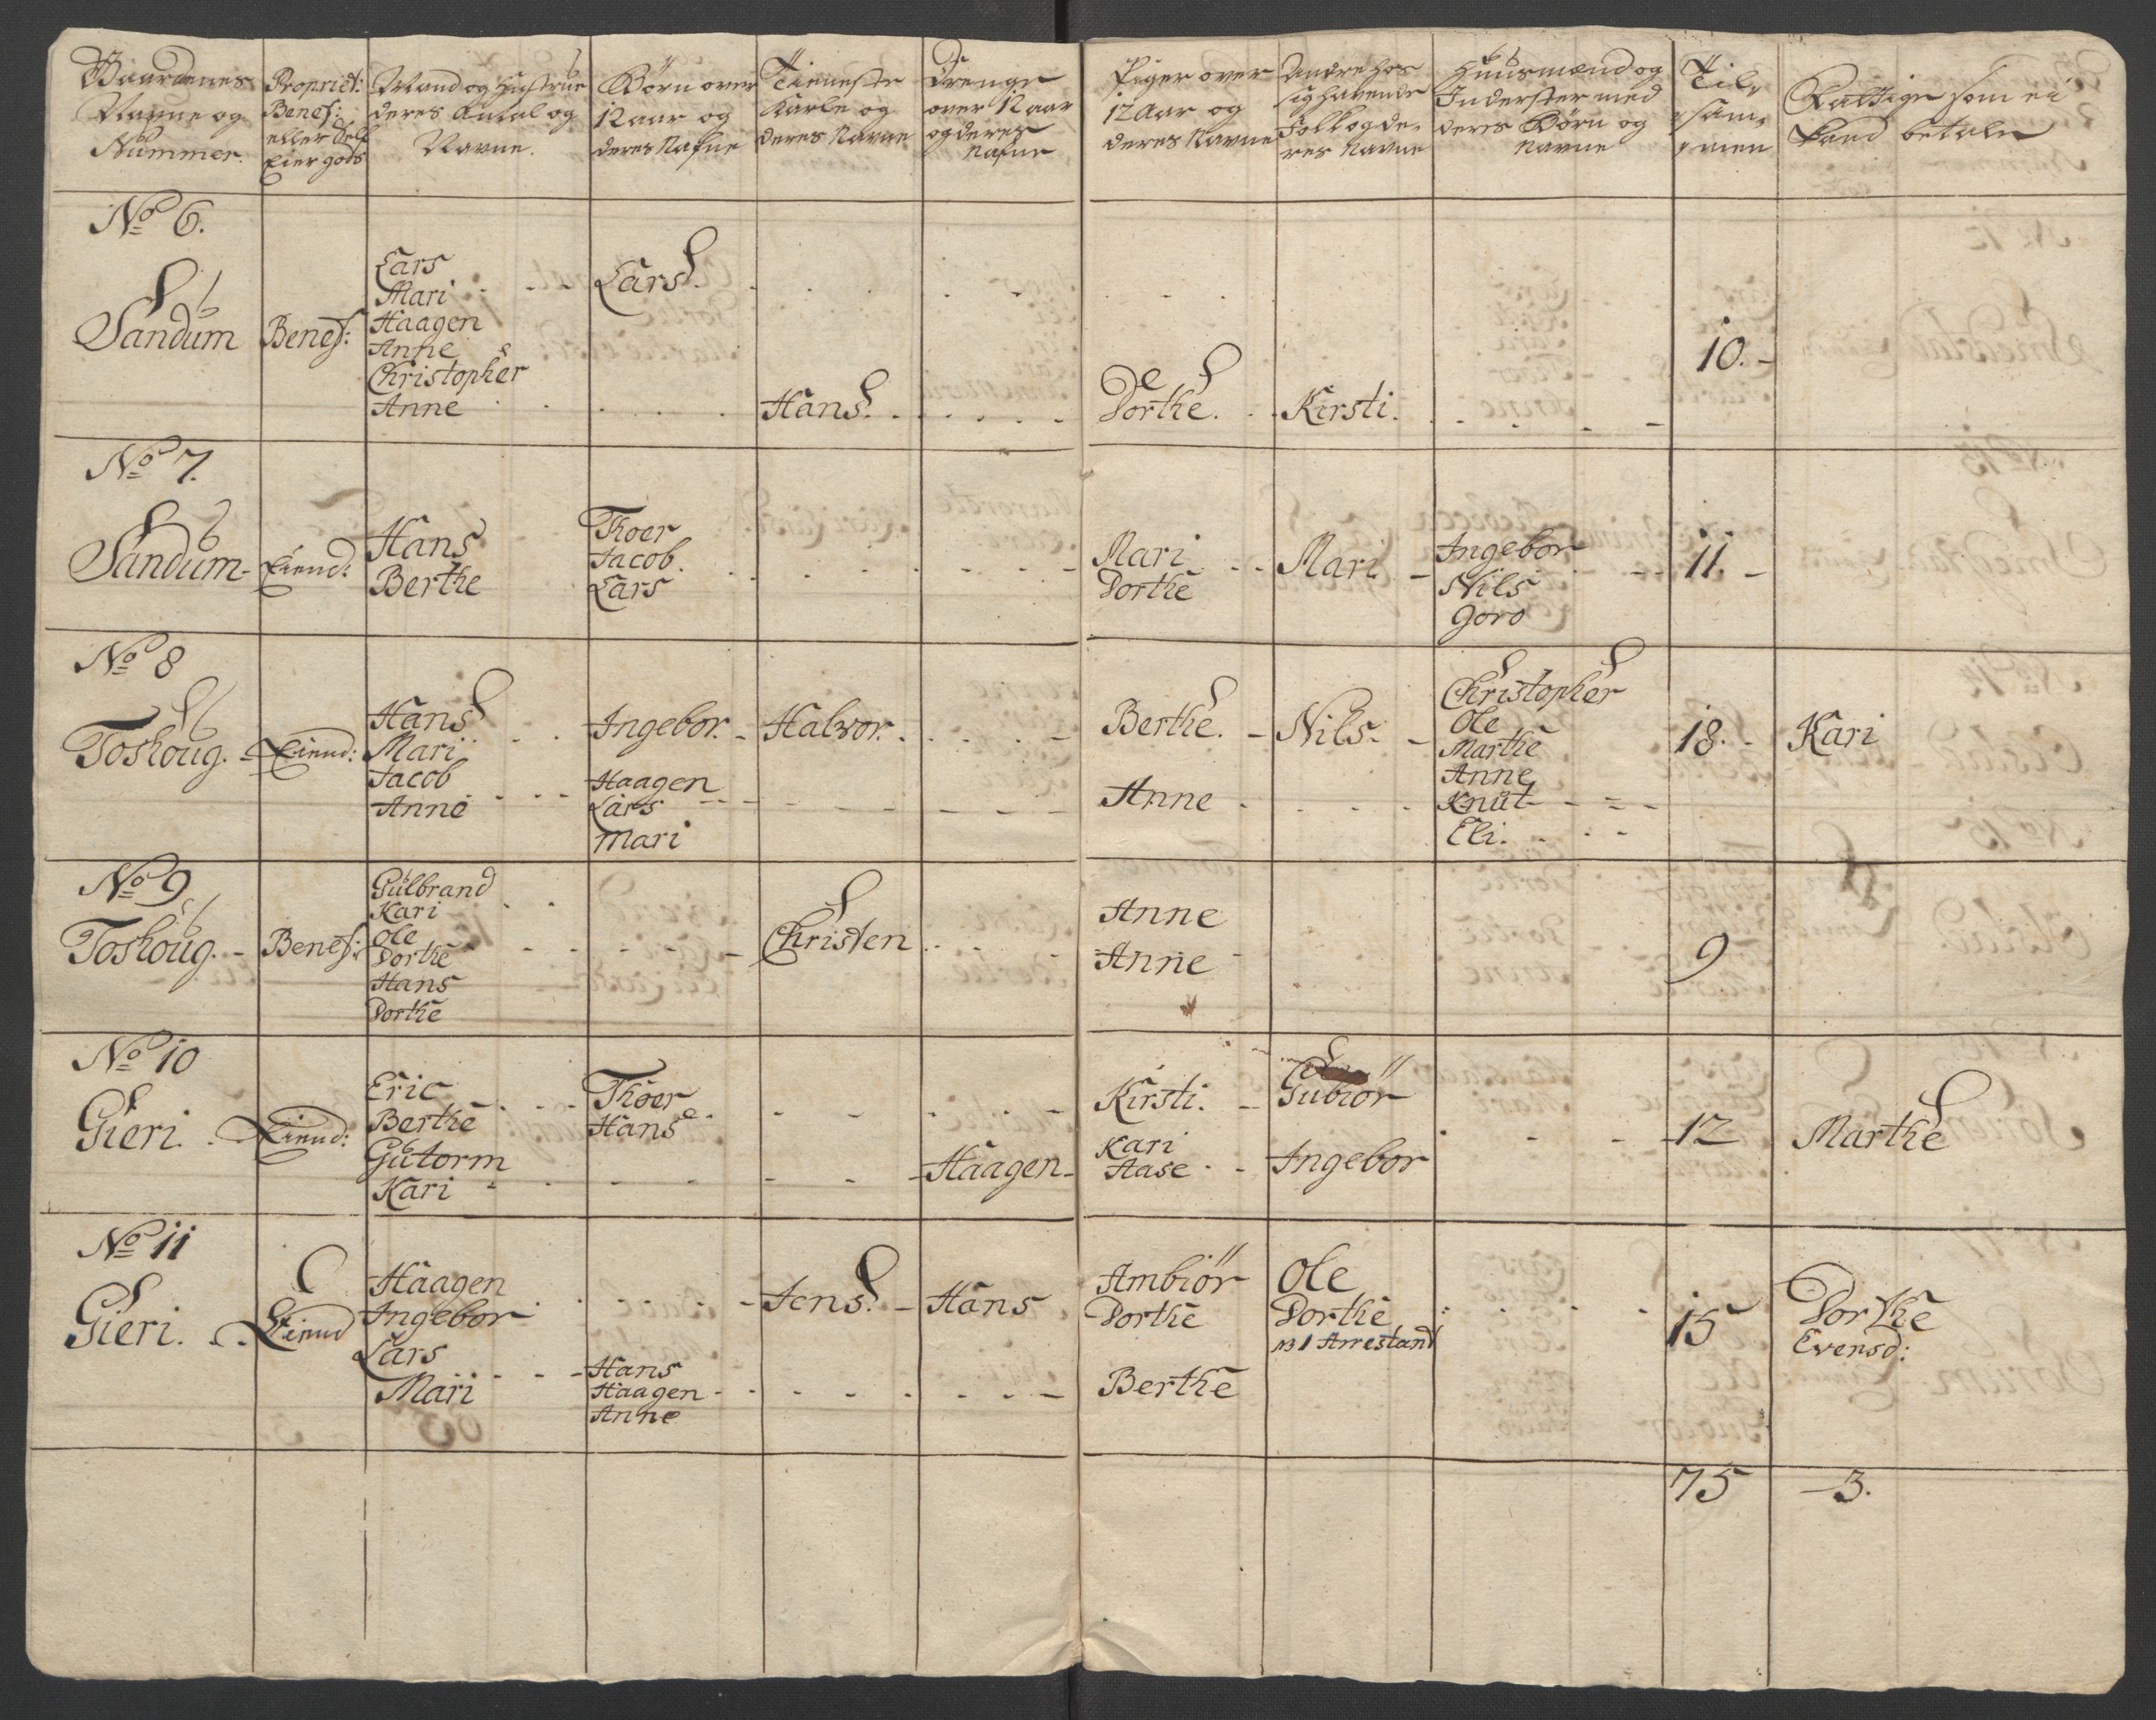 Gaardenes Navne og Nummer.
Propriet: Benef: eller Self Eier gods
Mand og Hustrue deres Antal og Navne.
Børn over 12 aar og deres Nafne
Tieneste Karle og deres Navne
Drenge over 12 aar og deres Nafne
Piger over 12 Aar og deres Navne
Andre hos sig havende Folk og deres Navne
Huusmænd og Inderster med deres Børn og Navne
Til,, ,,sam,, ,,men
Fattige som ei kand betale
No 6.
Sandum
Benef:
Lars
Mari
Haagen
Anne
Christopher
Anne
Lars
Hans
Dorthe
Kirsti
10.
No 7.
Sandum
Eiend:
Hans
Berthe
Thoer
Jacob
Lars
Mari
Dorthe
Mari
Ingebor
Nils
Goro
11.
No 8
Toshoug.
Eiend:
Hans
Mari
Jacob
Anne
Ingebor.
Haagen
Lars
Mari
Halvor.
Berthe.
Anne
Nils
Christopher
Ole
Marthe
Anne
Knut
Eli.
18.
Kari
No 9
Toshoug.
Benef:
Gulbrand
Kari
Ole
Dorthe
Hans
Dorthe
Christen
Anne
Anne
9
No 10
Gieri.
Eiend:
Eric
Berthe
Gutorm
Kari
Thoer
Hans
Haagen
Kirsti.
Kari
Aase
Gubiør
Ingebor
12
Marthe
No 11
Gieri.
Eiend
Haagen
Ingebor
Lars
Mari
Hans
Haagen
Anne
Jens.
Hans
Ambiør
Dorthe
Berthe
Ole
Dorthe
1 Arrestant
15
Dorthe
Evensd:
75
3.